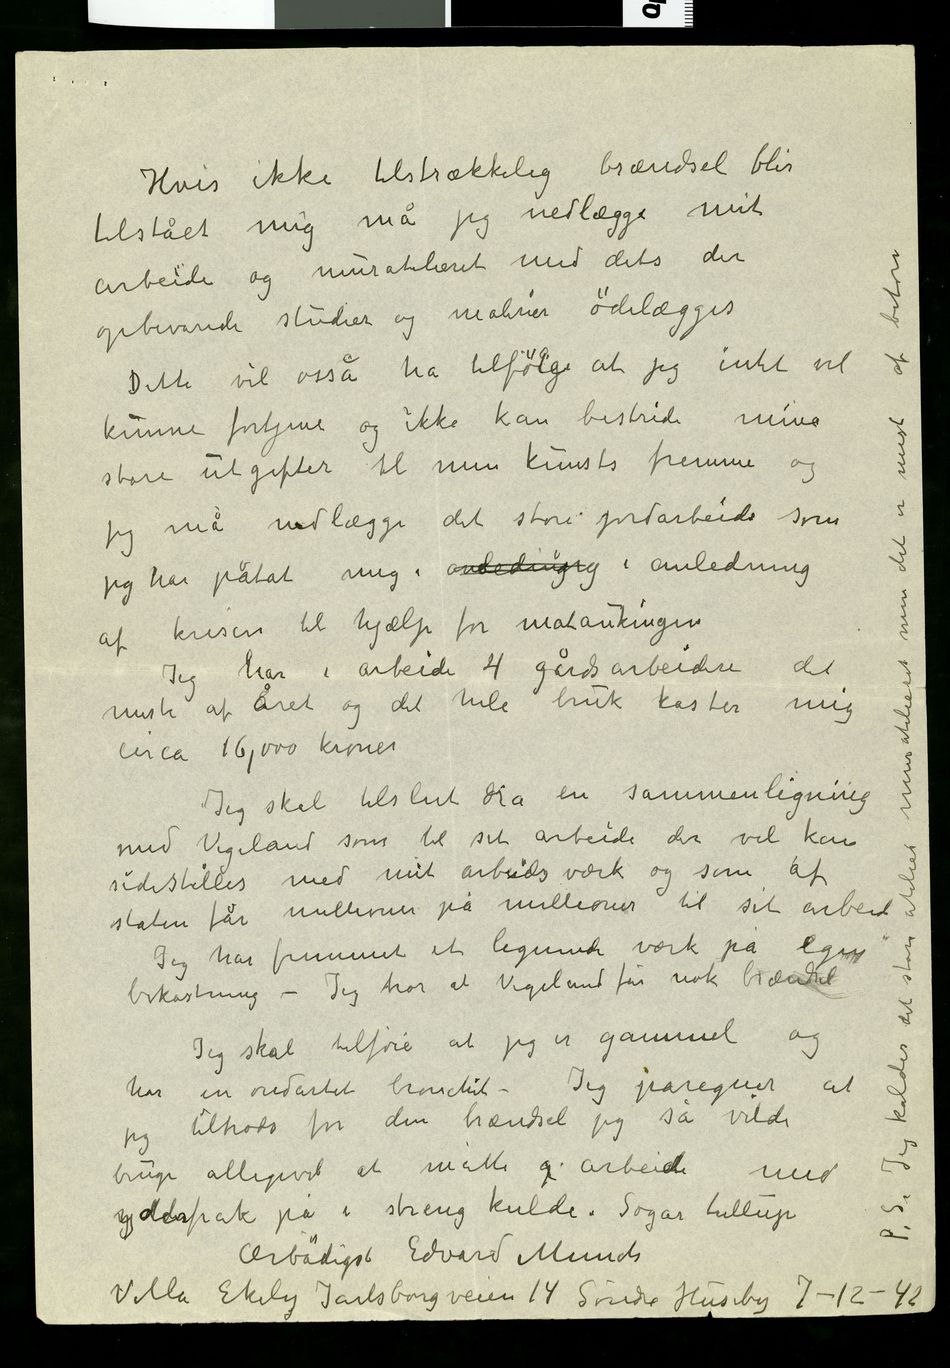 Hvis ikke tilstrækkelig brændsel blir
tilstået mig må jeg nedlægge mit
arbeide og muratelieret med dets der
opbevarede studier og malerier ödelægges
Dette vil osså ha tilfölge at jeg intet vil
kunne fortjene og ikke kan bestride mine
store utgifter til min kunsts fremme og
jeg må nedlægge det store jordarbeide som
jeg har påtat mig i anledning i anledning
af krisen til hjælp for mataukingen
Jeg har i arbeide 4 gårdsarbeidere det
meste af Året og det hele bruk koster mig
circa 16,000 kroner
Jeg skal tilslut dra en sammenligning
med Vigeland som til sit arbeide der vel kan
sidestilles med mit arbeidsværk og som af
staten får millioner på millioner til sit arbeid
Jeg har fremmet et lignende værk på egen
bekostning – Jeg tror at Vigeland får nok brændsel
Jeg skal tilföie at jeg er gammel og
har en ondartet bronchit – Jeg paregner at
jeg tiltrods for den brændsel jeg så vilde
bruge alligevel at måtte arbeide med
ydderfrak på i streng kulde. Sogar tullup
Ærbödigst Edvard Munch
Villa Ekely Jarlsborgveien 14 Söndre Huseby 7–12–42
P.S. Jeg kaldes det store atelier muratelieret men det er mest af betong